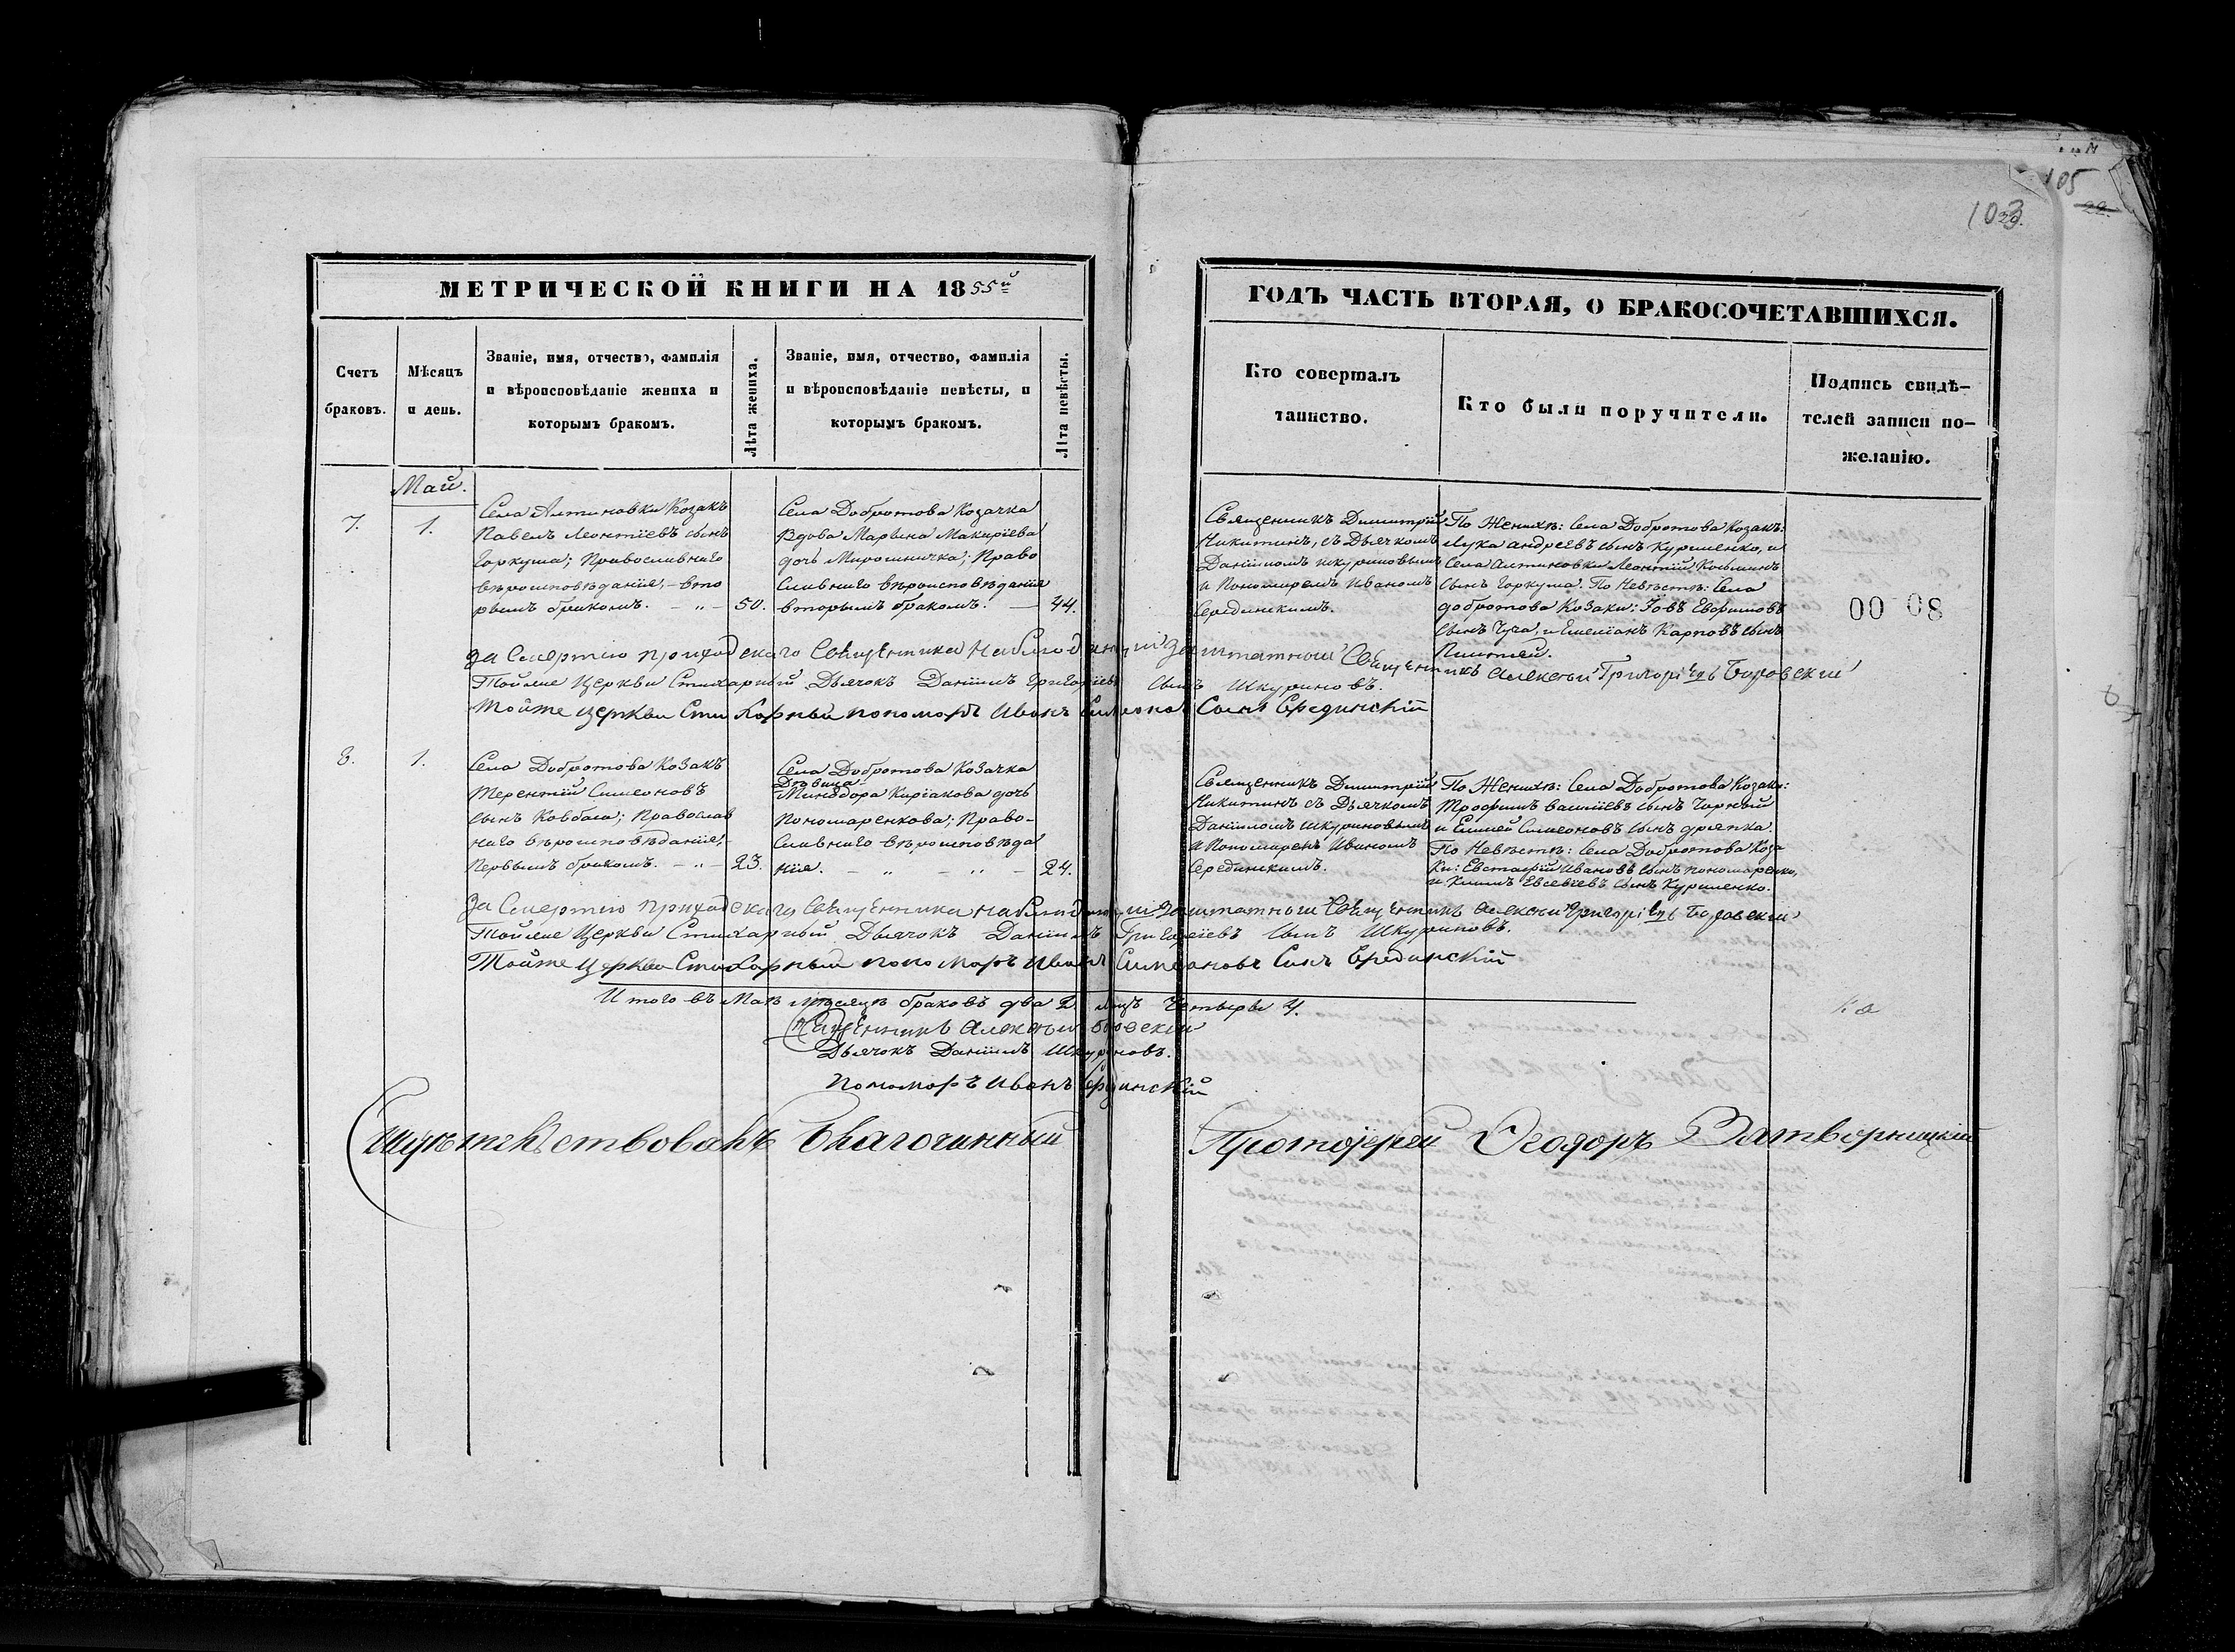 105
103
22.
МЕТРИЧЕСКОЙ КНИГИ НА 1855й
Счетъ браковъ.
Мѣсяцъ и день.
Званіе, имя, отчество, фамилія
и вѣроисповѣданіе жениха и
которымъ бракомъ.
Лѣта жениха.
Званіе, имя, отчество, фамилія
и вѣроисповѣданіе невѣсты, и
которымъ бракомъ.
Лѣта невѣсты.
ГОДЪ ЧАСТЬ ВТОРАЯ, О БРАКОСОЧЕТАВШИХСЯ.
Кто совершалъ
таинство.
Кто были поручители.
Подпись свидѣ-
телей записи по-
желанію.
Май.
7.
1.
Села Алтиновки Козакъ
Павелъ Леонтіевъ сынъ
Горкуша; Православнаго
вѣроисповѣданія, – вто
рымъ бракомъ. – „ –
50.
Села Добротова Козачка
Вдова Марѳина Макиріева
дочь Мирошничка; Право
славнаго вѣроисповѣданія
вторымъ бракомъ. –
44.
Священникъ Димитрій
Никитинъ, съ Дьячкомъ
Даніиломъ Шкуриновымъ
и Пономаремъ Иваномъ
Серединскимъ.
По Женихѣ: Села Добротова Козакъ:
Лука Андреевъ сынъ Куриленко, и
Села Алтиновки Леонтій Косминъ
сынъ Горкуша. По Невѣстѣ: Села
Добротова Козаки: Іовъ Евфимовъ
сынъ Чуча, и Емеліанъ Карповъ сынъ
00 08
За Смертію приходскаго Священника наблюдающій заштатный Священникъ Алексѣй Григоріевъ Боровскій
Тойже Церкви Стихарный Дьячокъ Даніилъ Григоріевъ сынъ Шкуриновъ.
Тойже церкви Стихарный пономарь Иванъ Симеоновъ Сынъ Срединскій
8.
1.
Села Добротова Козакъ
Терентій Симеоновъ
сынъ Ковбаса; Православ
наго вѣроисповѣданія,
первымъ бракомъ. – „ –
23.
Села Добротова Козачка
Дѣвица
Минодора Киріакова дочь
Пономаренкова; Право-
славнаго вѣроисповѣда
нія. – „ – „ –
24.
Священникъ Димитрій
Никитинъ съ Дьячкомъ
Даніиломъ Шкуриновымъ
и Пономаремъ Иваномъ
Серединскимъ.
По Женихѣ: Села Добротова Козаки:
Трофимъ Василіевъ сынъ Чорный
и Елисей Симеоновъ сынъ Дрепка.
По Невѣстѣ: Села Добротова Коза
ки: Евстафій Ивановъ сынъ Пономаренко,
и Климъ Евсевіевъ сынъ Куриленко.
За Смертію приходскаго Священника наблюдающій заштатный Священникъ Алексѣй Григоріевъ Боровскій
Тойже Церкви Стихарный Дьячокъ Даніилъ Григоріевъ сынъ Шкуриновъ.
Тойже Церкви Стихарный пономарь Иванъ Симеоновъ Сынъ Срединскій
Итого въ Маѣ мѣсяцѣ браковъ два 2. лицъ Четыры 4.
Священникъ Алексѣй Боровскій
Дьячокъ Даніилъ Шкуриновъ.
Пономарь Иванъ Срединскій
Свидѣтельствовалъ Благочинный Протоіерей Ѳеодоръ Затворницкій